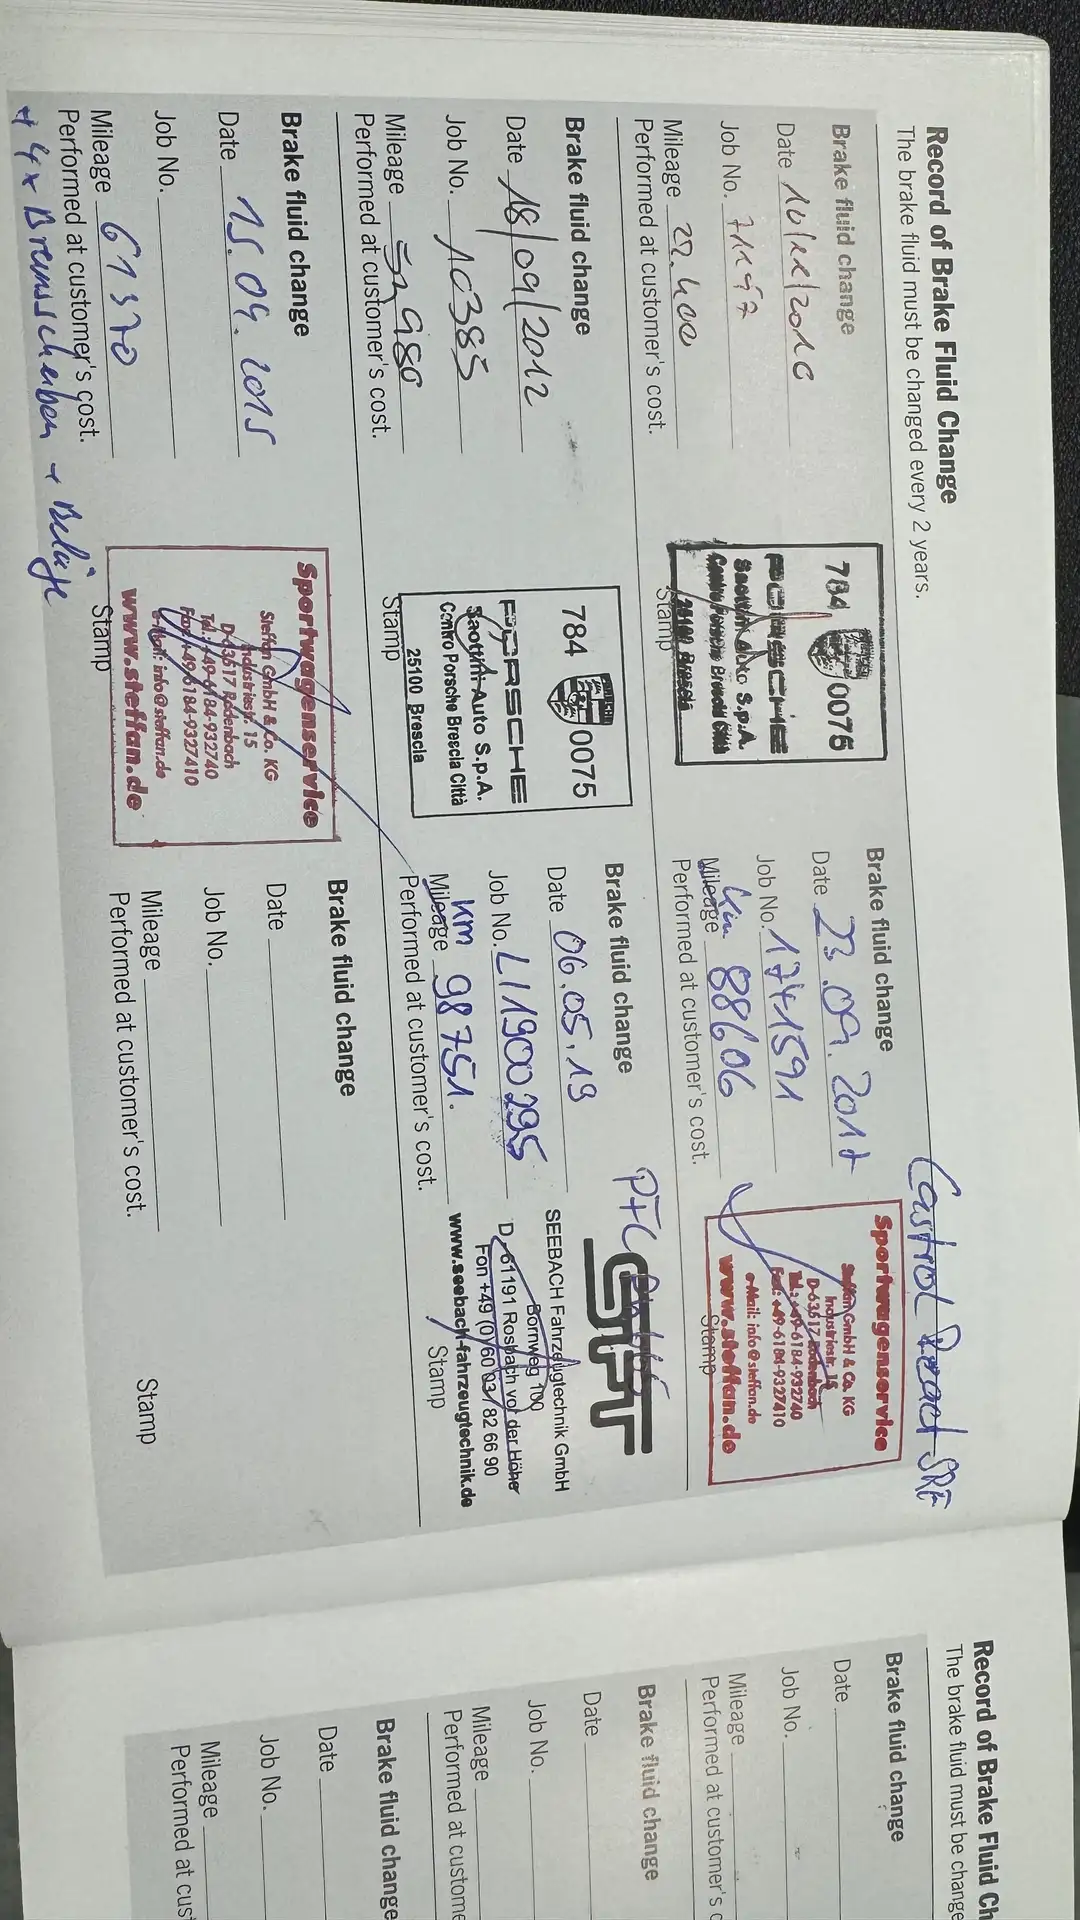 Record of Brake Fluid Change
The brake fluid must be changed every 2 years.
Castrol React SRF
Brake fluid change
Date 10/11/2010
Job No. 71197
Mileage 22.400
Performed at customer's cost.
784 0075
PORSCHE
Saottini Auto S.p.A.
Centro Porsche Brescia Città
25100 Brescia
Stamp
Brake fluid change
Date 18/09/2012
Job No. 10385
Mileage 980
Performed at customer's cost.
784 0075
PORSCHE
Saottini Auto S.p.A.
Centro Porsche Brescia Città
25100 Brescia
Stamp
Brake fluid change
Date 15.09.2015
Job No.
Mileage 61370
Performed at customer's cost.
+ 4x Bremsscheiben + Beläge
Sportwagenservice
Steffan GmbH & Co. KG
Industriestr. 15
D-63517 Rodenbach
Tel.: +49-6184-932740
Fax: +49-6184-9327410
e-Mail: info@steffan.de
www.steffan.de
Stamp
Brake fluid change
Date 23.09.2017
Job No. 1741591
km
Mileage 88606
Performed at customer's cost.
Sportwagenservice
Steffan GmbH & Co. KG
Industriestr. 15
D-63517 Rodenbach
Tel.: +49-6184-932740
Fax: +49-6184-9327410
e-Mail: info@steffan.de
www.steffan.de
Stamp
Brake fluid change
Date 06.05.19
Job No. LI1900295
km
Mileage 98751.
Performed at customer's cost.
SEEBACH Fahrzeugtechnik GmbH
Bornweg 100
D-61191 Rosbach vor der Höhe
Fon +49 (0) 60 03 / 82 66 90
www.seebach-fahrzeugtechnik.de
Stamp
Brake fluid change
Date
Job No.
Mileage
Performed at customer's cost.
Stamp
Record of Brake Fluid Ch
The brake fluid must be change
Brake fluid change
Date
Job No.
Mileage
Performed at customer's c
Brake fluid change
Date
Job No.
Mileage
Performed at custome
Brake fluid change
Date
Job No.
Mileage
Performed at cust